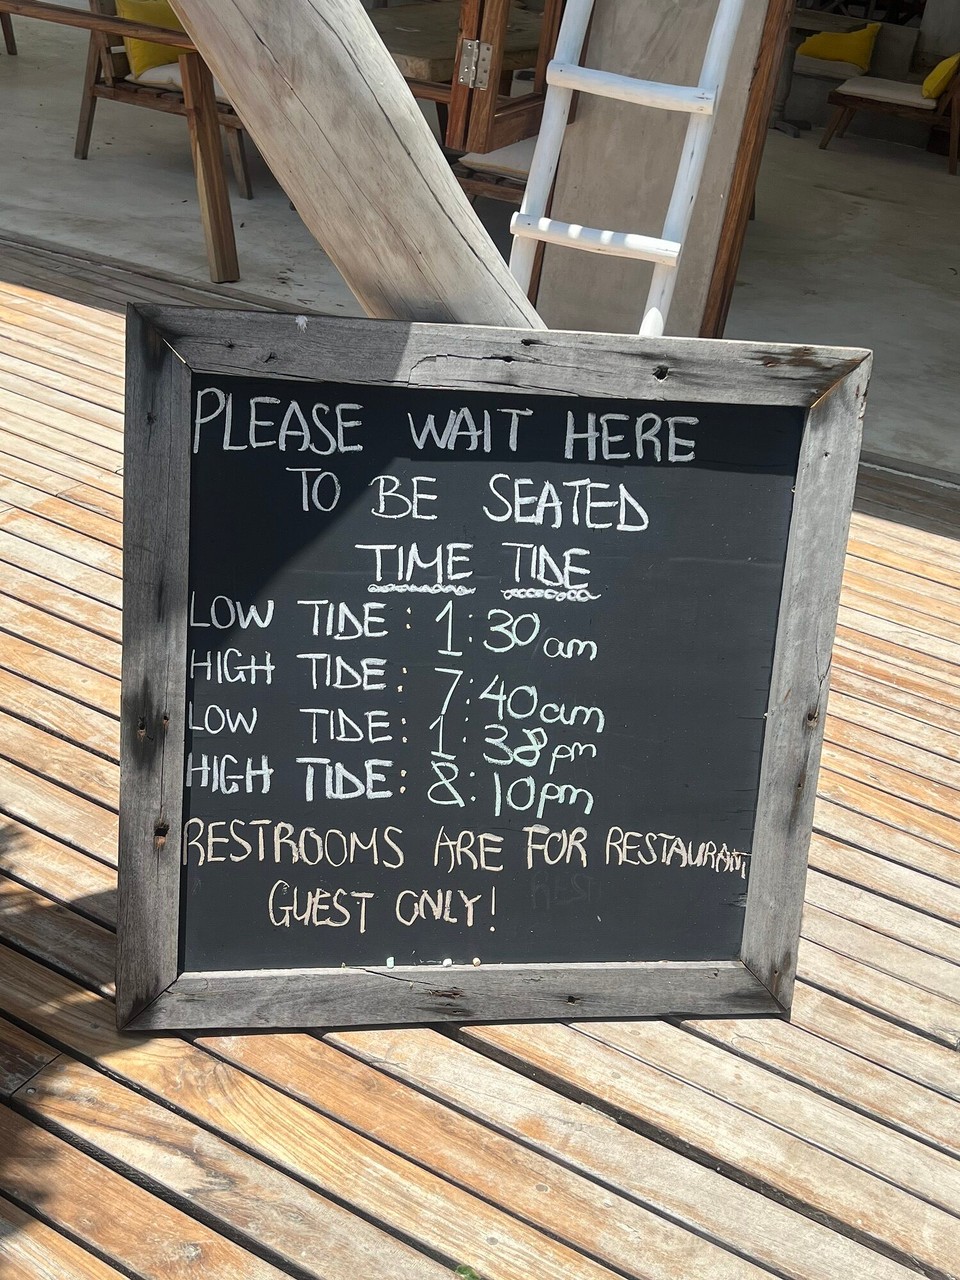 PLEASE WAIT HERE
TO BE SEATED
TIME TIDE
LOW TIDE: 1:30am
HIGH TIDE: 7:40am
LOW TIDE: 1:38pm
HIGH TIDE: 8:10pm
RESTROOMS ARE FOR RESTAURANT
GUEST ONLY!